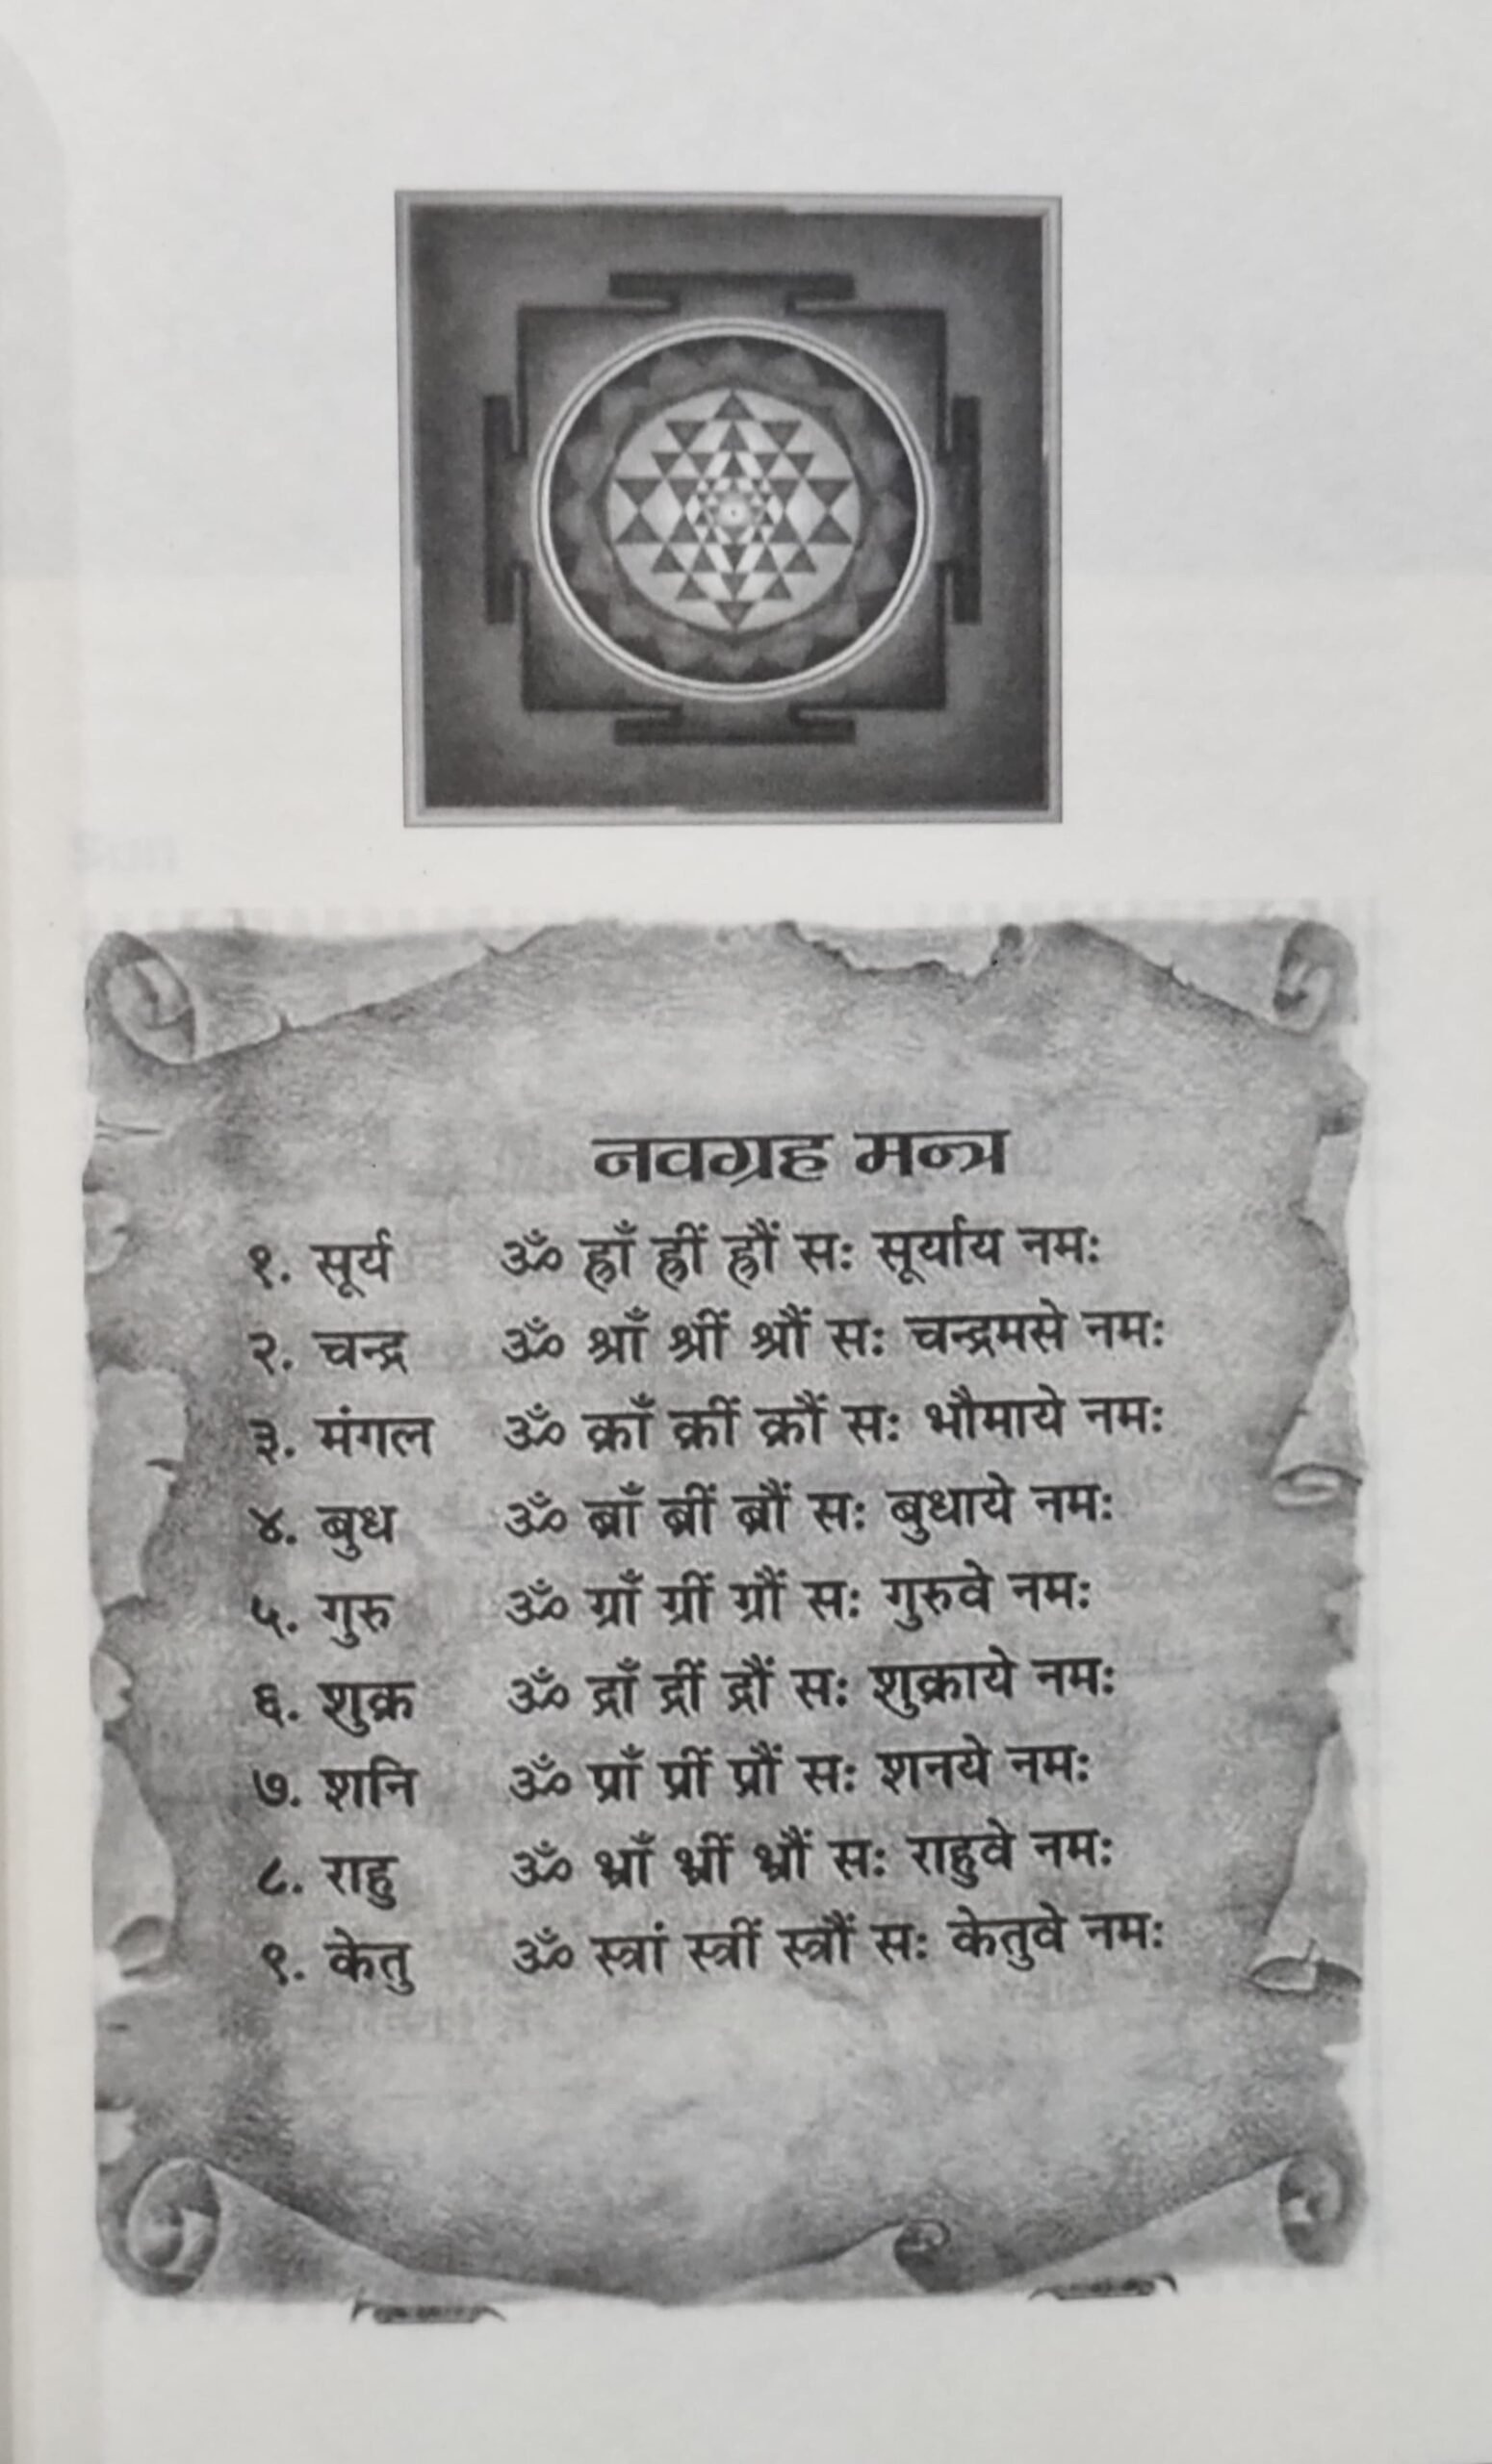 नवग्रह मन्त्र
१. सूर्य ॐ ह्राँ ह्रीं ह्रौं सः सूर्याय नमः
२. चन्द्र ॐ श्राँ श्रीं श्रौं सः चन्द्रमसे नमः
३. मंगल ॐ क्राँ क्रीं क्रौं सः भौमाये नमः
४. बुध ॐ ब्राँ ब्रीं ब्रौं सः बुधाये नमः
५. गुरु ॐ ग्राँ ग्रीं ग्रौं सः गुरुवे नमः
६. शुक्र ॐ द्राँ द्रीं द्रौं सः शुक्राये नमः
७. शनि ॐ प्राँ प्रीं प्रौं सः शनये नमः
८. राहु ॐ भ्राँ भ्रीं भ्रौं सः राहुवे नमः
९. केतु ॐ स्त्रां स्त्रीं स्त्रौं सः केतुवे नमः